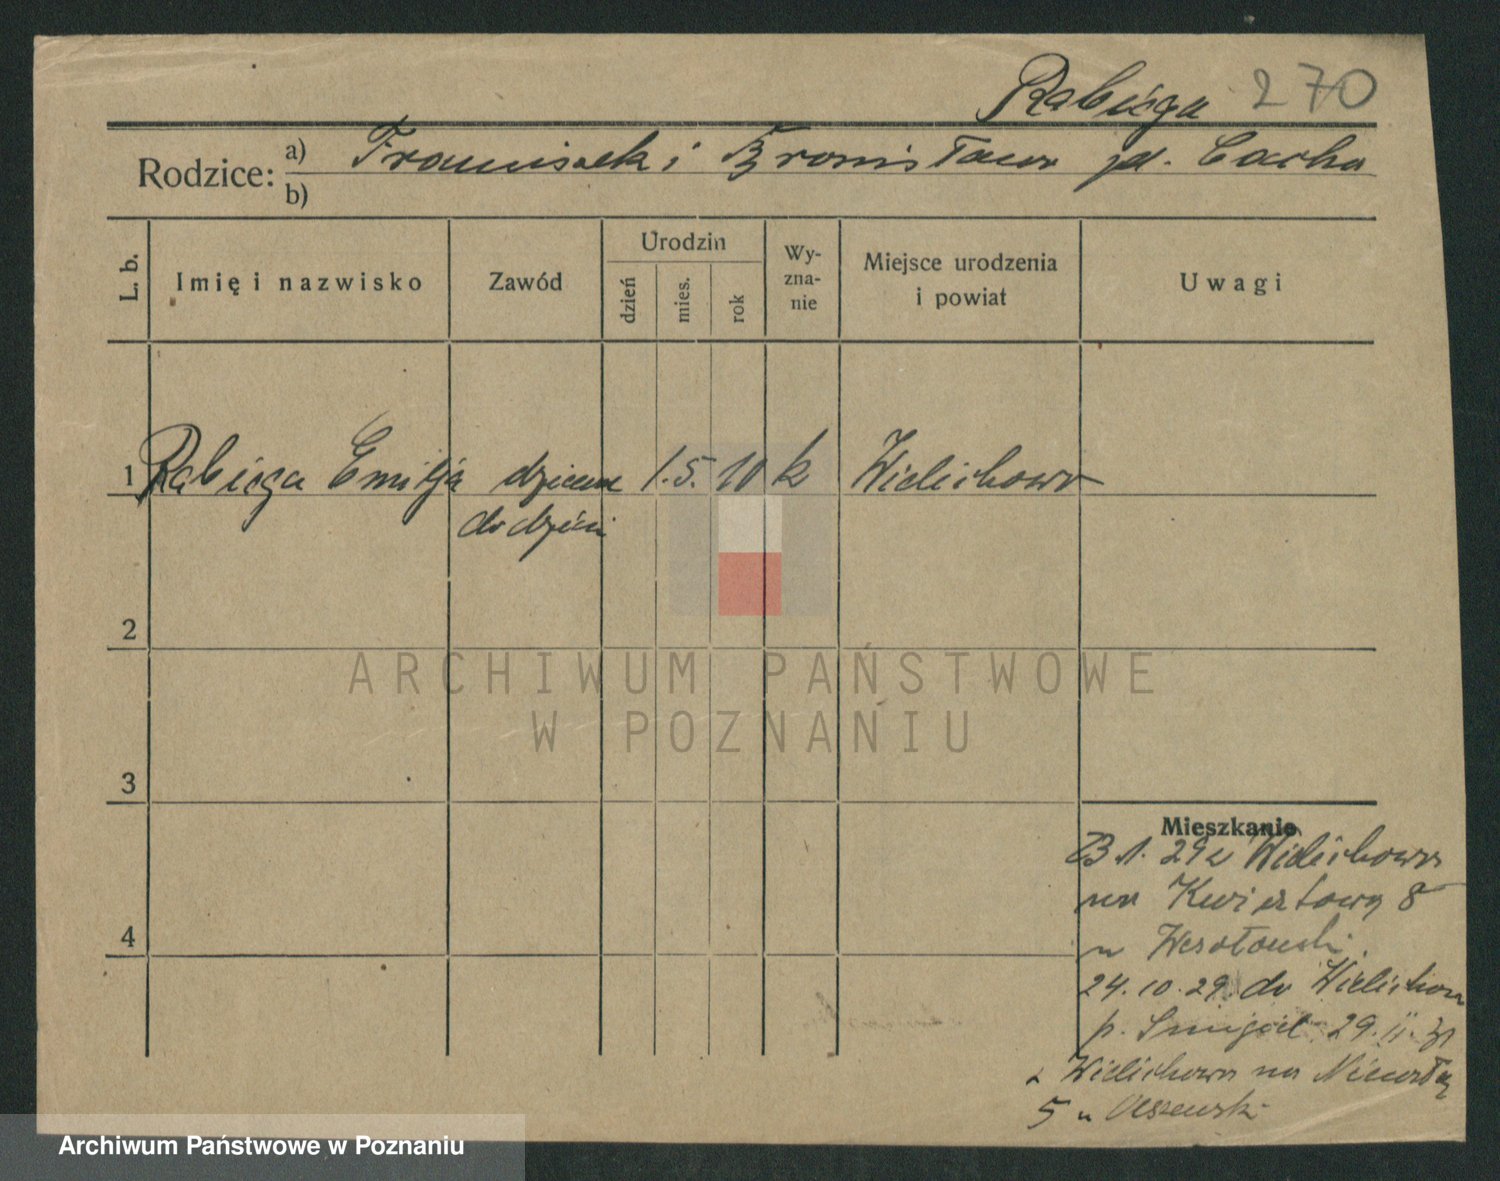 Rabiega 270
Rodzice: a) Franciszek i Bronisława zd. Cacha
b)
L. b. Imię i nazwisko Zawód Urodzin dzień mies. rok Wy-zna-nie Miejsce urodzenia i powiat Uwagi
1 Rabiega Emilja dziewcz 1. 5. 10 k Wielichowo
do dzieci
2
ARCHIWUM PAŃSTWOWE
W POZNANIU
3
Mieszkanie
29 z Wielichowa
na Kwiatową 8
u Wesołowski
4
24.10.29. do Wielichowa
p. Śmigiel 29. II. 31
z Wielichowa na
5 u Olszewski
Archiwum Państwowe w Poznaniu